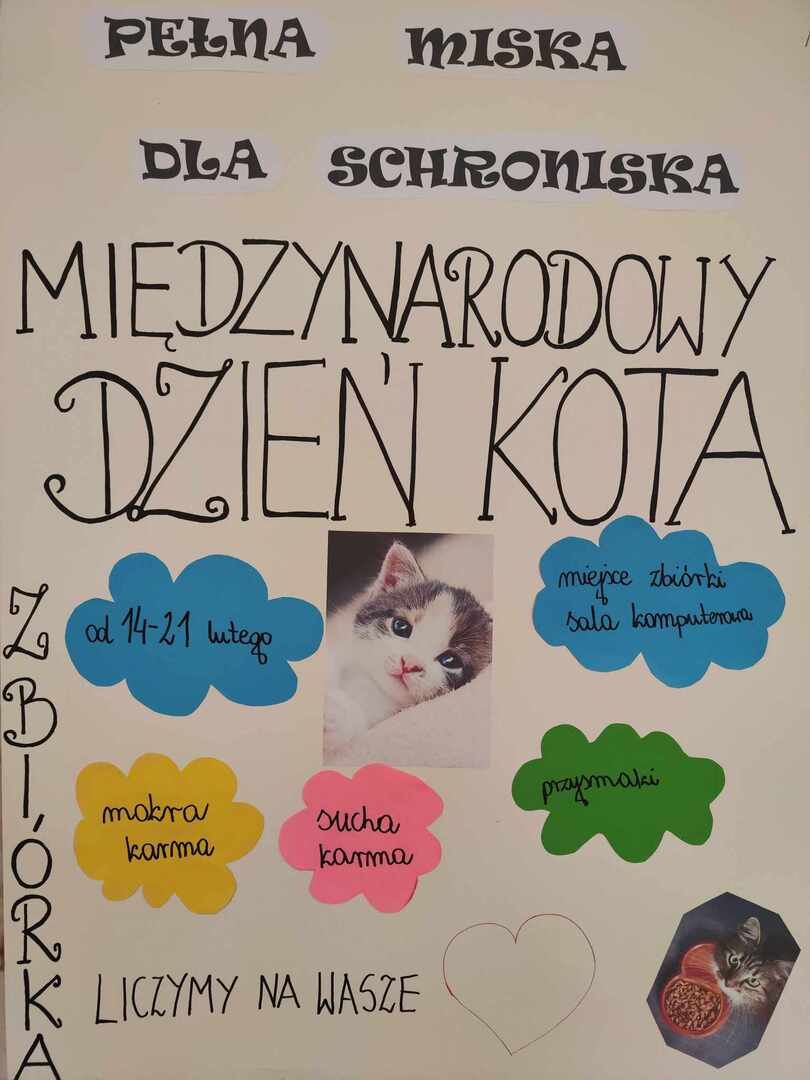 PEŁNA MISKA
DLA SCHRONISKA
MIĘDZYNARODOWY
DZIEŃ KOTA
ZBIÓRKA
od 14-21 lutego
miejsce zbiórki
sala komputerowa
mokra
karma
sucha
karma
przysmaki
LICZYMY NA WASZE